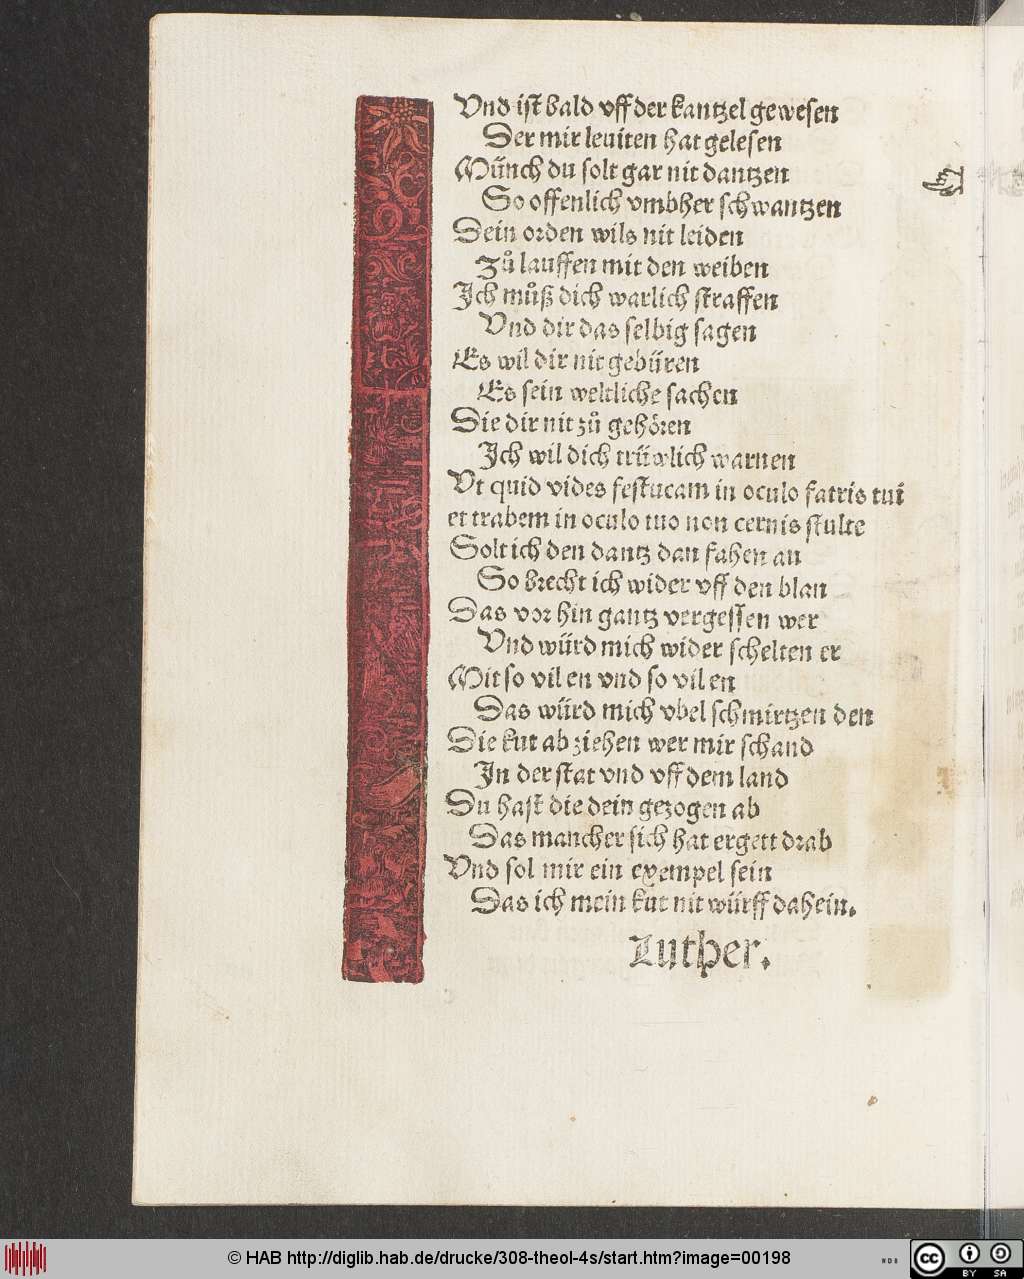 Vnd ist bald vff der kantzel gewesen
Der mir leuiten hat gelesen
Münch du solt gar nit dantzen
So offenlich vmbher schwantzen
Dein orden wils nit leiden
Zů lauffen mit den weiben
Ich můß dich warlich straffen
Vnd dir das selbig sagen
Es wil dir nit gebüren
Es sein weltliche sachen
Die dir nit zů gehören
Ich wil dich trüwlich warnen
Vt quid vides festucam in oculo fatris tui
et trabem in oculo tuo non cernis stulte
Solt ich den dantz dan fahen an
So brecht ich wider vff den blan
Das vor hin gantz vergessen wer
Vnd würd mich wider schelten er
Mit so vil en vnd so vil en
Das würd mich vbel schmirtzen den
Die kut ab ziehen wer mir schand
In der stat vnd vff dem land
Du hast die dein gezogen ab
Das mancher sich hat ergett drab
Vnd sol mir ein exempel sein
Das ich mein kut nit würff dahein.
Luther.
© HAB http://diglib.hab.de/drucke/308-theol-4s/start.htm?image=00198
cc BY SA